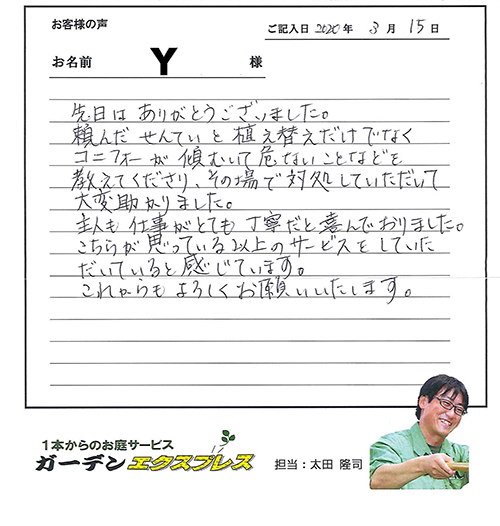 お客様の声
ご記入日 2020年 3月 15日
お名前 Y 様
先日は ありがとうございました。
頼んだ せんていと 植え替えだけでなく
コニファーが 傾むいて 危ないことなどを
教えてくださり、その場で 対処していただいて
大変助かりました。
主人も 仕事がとても 丁寧だと喜んでおりました。
こちらが 思っている以上のサービスをしていた
だいていると感じています。
これからも よろしくお願いいたします。
1本からのお庭サービス
ガーデンエクスプレス
担当：太田 隆司